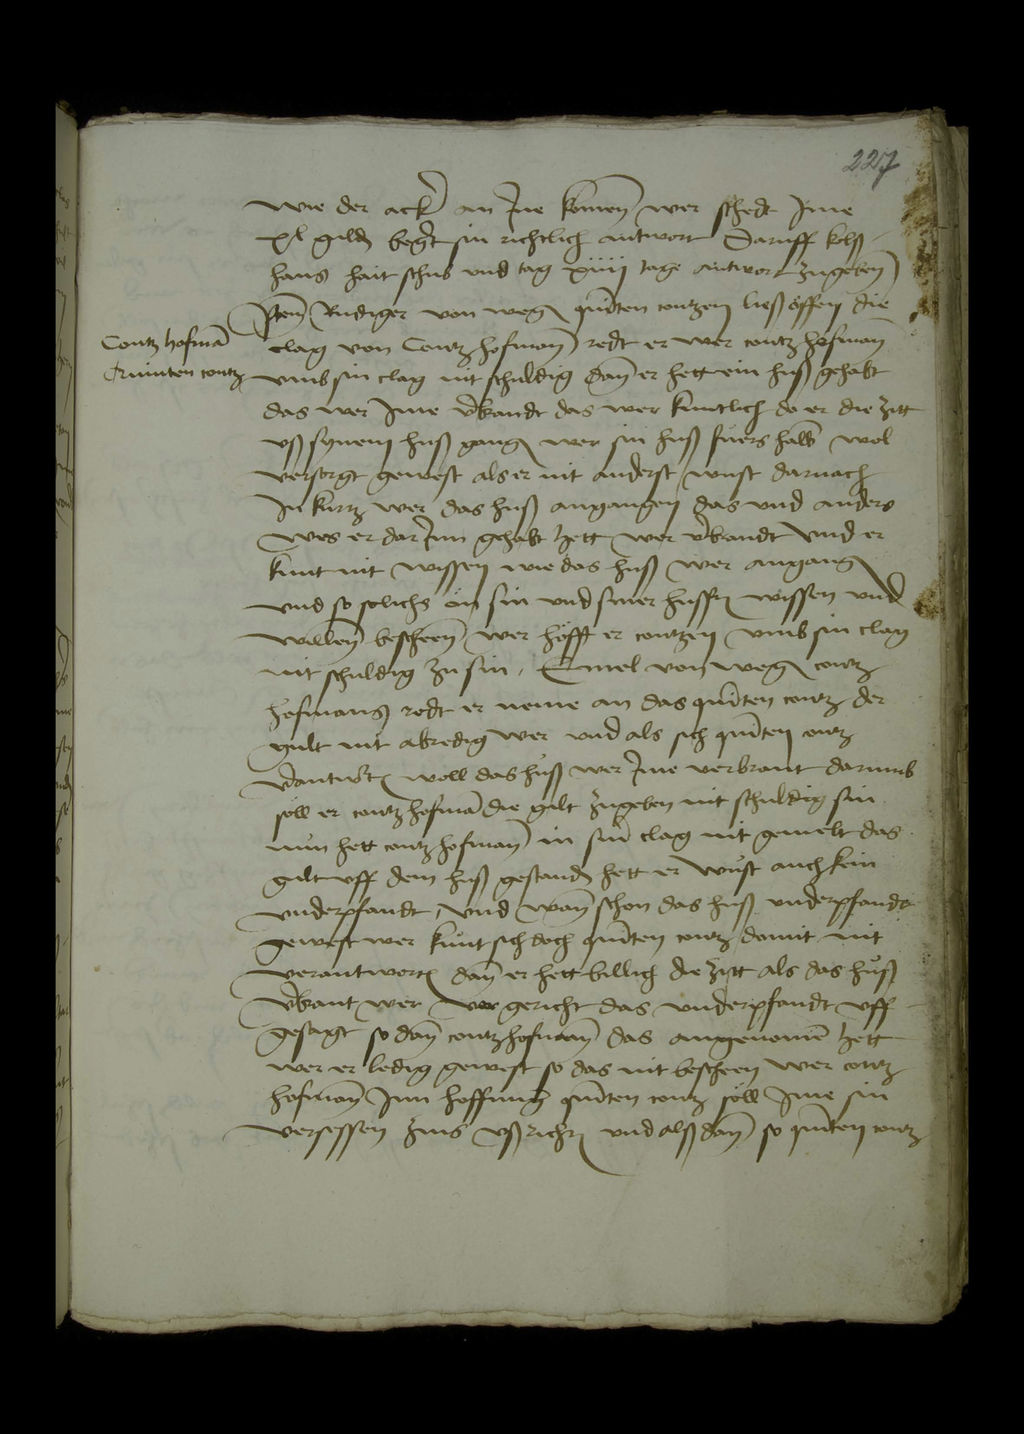 227
wie der acker an Ine komen wer schedt Ime
xl gulden begert sin richtlich antwort Daruff kolß
hans hait schub und tag xiiii tage antwort zugeben
Contz hofman
Quinten contz
Item Rudiger von wegen quinten contzen ließ öffen die
clag von Contz hofman redt er wer contz hofman
umb sin clag nit schuldig dan er hett ein huß gehabt
das wer Ime verbrandt das wer kuntlich do er die zitt
uß synem huß gangen wer sin huß fuers halb wol
versorgt gewest als er nit anderst wust darnach
In kurtz wer das huß angangen das und anders
wes er dar Inn gehabt hett wer verbrandt und er
kunt nit wissen wie das huß wer angangen
und so solichs on sin und siner hussfrauen wissen und
willen bescheen wer hofft er contzen umb sin clag
nit schuldig zu sin Emel von wegen contz
hofmans redt er neme an das quinten contz der
gult nit abredig wer und als sich quinten contz
verantwort woll das huß wer Ime verbrant darumb
soll er contz hofman die gult zugeben nit schuldig sin
nun hett contz hofman in siner clag nit gemelt das
gult uff dem huß gestanden hett er wust auch kein
underpfandt und wan schon das huß underpfandt
gewest wer kunt sich doch quinten contz domit nit
verantworten dan er hett billich die zitt als das huß
verbrant wer vor gericht das underpfandt uff
gesagt so dan contz hofman das angenomen hett
wer er ledig gewest so das nit bescheen wer contz
hofman Inn hoffnung quinten contz soll Ime sin
versessen zins ußrichten und alß dan so quinten contz